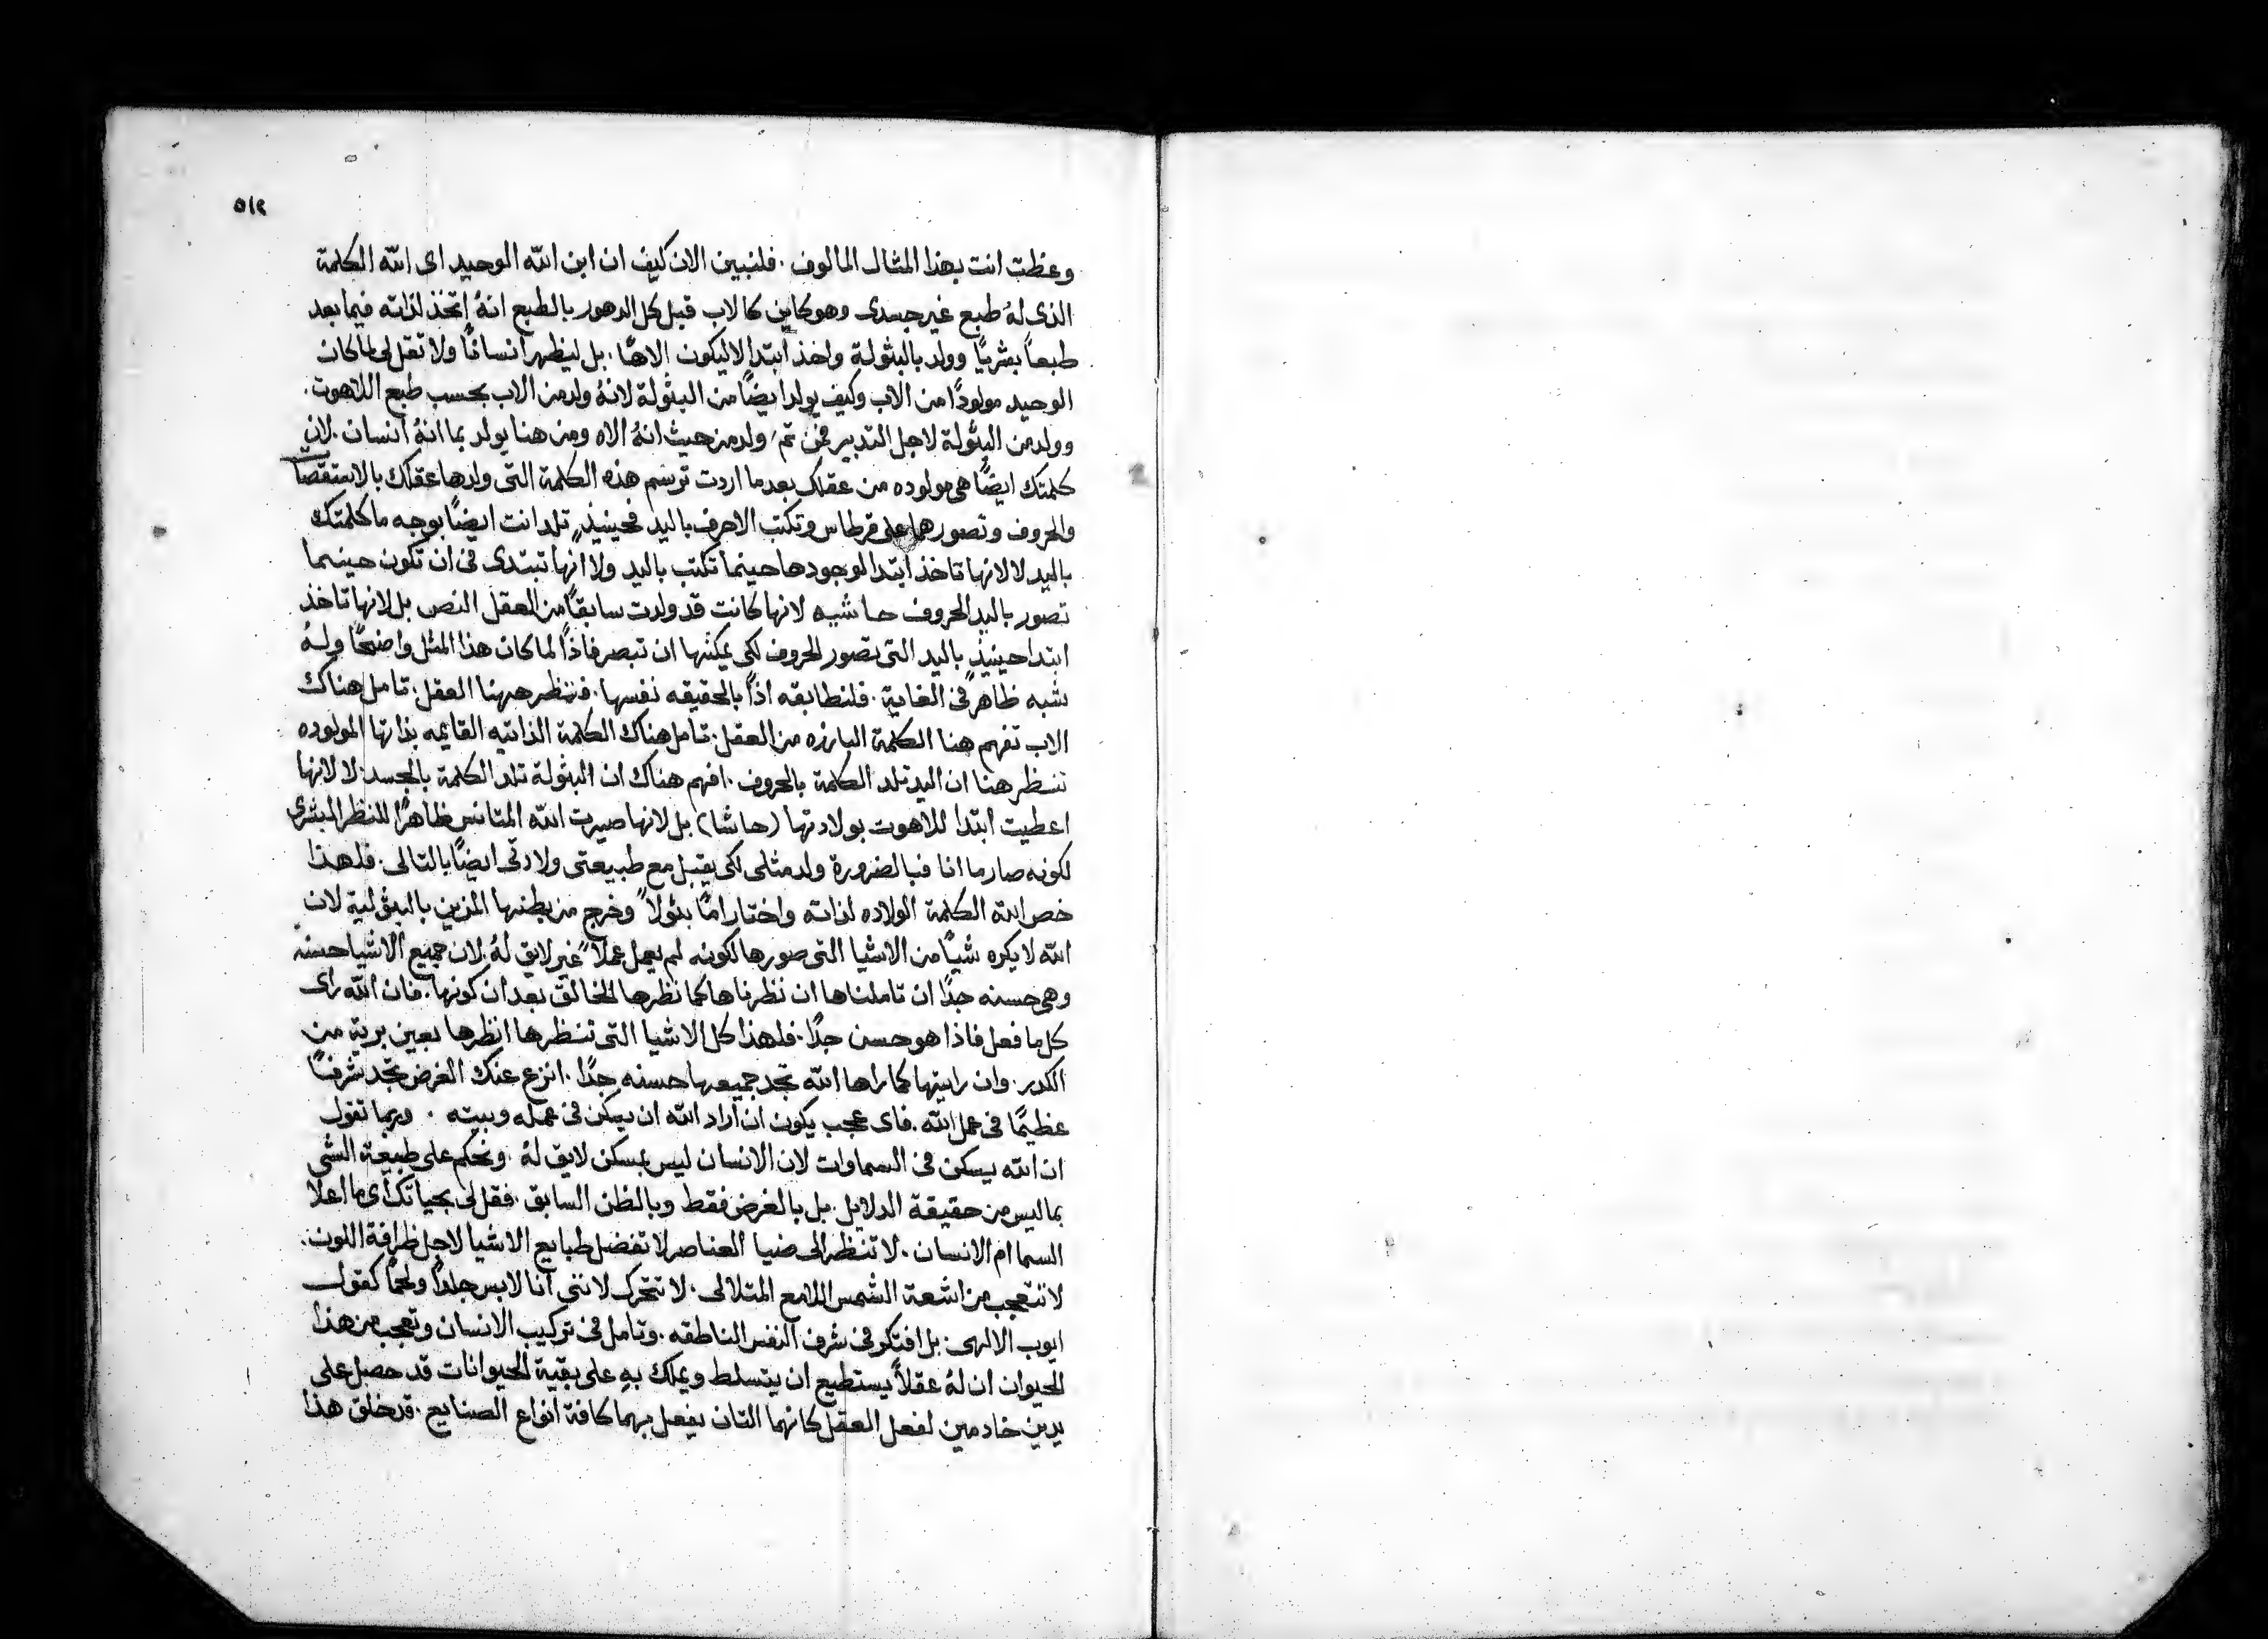 ٥١٢
وعظت انت بهذا المثال المالوف . فلنبين الان كيف ان ابن الله الوحيد اى الله الكلمة
الذى لهُ طبع غير جسدى وهو كاين كالاب قبل كل الدهور بالطبع انهُ اتخذ لذاته فيما بعد
طبعاً بشريًا وولد بالبثولة واخذ ابتدا لا ليكون الاهًا . بل ليظهر انسانًا ولا تقل لى لما كان
الوحيد مولودًا من الاب وكيف يولد ايضًا من البثولة لانهُ ولد من الاب بحسب طبع اللاهوت .
وولد من البثولة لاجل التدبير فمن ثم ولد من حيث انهُ الاه ومن هنا يولد بما انهُ انسان . لان
كلمتك ايضًا هى مولوده من عقلك بعد ما اردت ترسم هذه الكلمة التى ولدها عقلك بالاستقصا
والحروف وتصورهما على قرطاس وتكتب الاحرف باليد فحينيذٍ تلد انت ايضًا بوجه ما كلمتك
باليد لا لانها تاخذ ابتدا لوجودها حينما تكتب باليد ولا انها تبتدى فى ان تكون حينما
تصور باليد الحروف حاشيه لانها كانت قد ولدت سابقًا من العقل النص بل لانها تاخذ
ابتدا حينيذٍ باليد التى تصور الحروف لكى يمكنها ان تبصر فاذًا لما كان هذا المثل واضحًا ولهُ
شبه ظاهر فى الغاية . فلنطابقه اذًا بالحقيقه نفسها . فننظر ههنا العقل . تامل هناك
الاب تفهم هنا الكلمة البارزه من العقل . تامل هناك الكلمة الذاتيه القايمه بذاتها المولوده
تنظر هنا ان اليد تلد الكلمة بالحروف . افهم هناك ان البثولة تلد الكلمة بالجسد . لا لانها
اعطيت ابتدا للاهوت بولادتها (حاشا) بل لانها صيرت الله المتانس ظاهرًا للنظر البشرى
لكونه صار ما انا فبالضرورة ولد مثلى لكى يقبل مع طبيعتى ولادتى ايضًا بالتالى . فلهذا
خص الله الكلمة الولاده لذاته واختار امًا بثولاً وخرج من بطنها المزين بالبثولية لان
الله لا يكره شيًا من الاشيا التى صورها لكونه لم يعمل عملاً غير لايق لهُ لان جميع الاشيا حسنه
وهى حسنه جدًا ان تاملناها ان نظرناها كما نظرها الخالق بعد ان كونها . فان الله راى
كل ما فعل فاذا هو حسن جدًا . فلهذا كل الاشيا التى تنظرها انظرها بعين برية من
الكدر . وان رايتها كما راها الله تجد جميعها حسنه جدًا . انزع عنك الغرض تجد شرفًا
عظيمًا فى عمل الله . فاى عجب يكون ان اراد الله ان يسكن فى عمله وبيته . وربما تقول
ان الله يسكن فى السماوات لان الانسان ليس بمسكن لايق لهُ . وتحكم على طبيعة الشى
بما ليس من حقيقة الدلايل . بل بالغرض فقط وبالظن السابق . فقل لى بحياتك اى ما اعلا
السما ام الانسان . لا تنظر الى ضيا العناصر لا تفضل طبايع الاشيا لاجل ظرافة اللون .
لا تتعجب من اشعة الشمس اللامع المتلالى . لا تتحرك لاننى انا لابس جلدًا ولحمًا كقول
ايوب الالهى بل افتكر فى شرف النفس الناطقه . وتامل فى تركيب الانسان وتعجب من هذا
الحيوان ان لهُ عقلاً يستطيع ان يتسلط ويملك بهِ على بقية الحيوانات قد حصل على
يدين خادمين لفعل العقل كانهما التان يفعل بهما كافة انواع الصنايع . قد خلق هذا